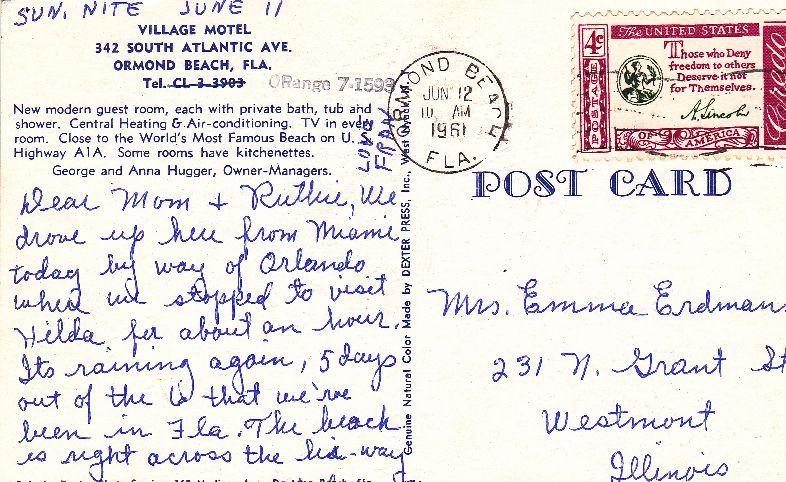 SUN. NITE JUNE 11
VILLAGE MOTEL
342 SOUTH ATLANTIC AVE.
ORMOND BEACH, FLA.
Tel. CL 3-3903 ORange 7-1593
New modern guest room, each with private bath, tub and
shower. Central Heating & Air-conditioning. TV in every
room. Close to the World's Most Famous Beach on U. S.
Highway A1A. Some rooms have kitchenettes.
George and Anna Hugger, Owner-Managers.
Dear Mom & Ruthie, We
drove up here from Miami
today by way of Orlando
where we stopped to visit
Hilda for about an hour.
Its raining again, 5 days
out of the 6 that we've
been in Fla. The beach
is right across the hi-way
LOVE
FRAN
Genuine Natural Color Made by DEXTER PRESS, Inc., West Nyack,
ORMOND BEACH
JUN 12
10 AM
1961
FLA.
4¢
POSTAGE
The UNITED STATES
Those who Deny
freedom to others
Deserve it not
for Themselves.
A. Lincoln
OF AMERICA
Credo
POST CARD
Mrs. Emma Erdman
231 N. Grant St
Westmont
Illinois